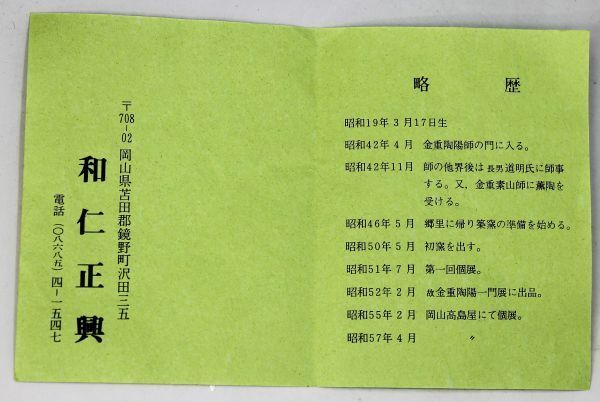 略歴
昭和19年3月17日生
昭和42年4月 金重陶陽師の門に入る。
昭和42年11月 師の他界後は長男道明氏に師事
する。又，金重素山師に薫陶を
受ける。
昭和46年5月 郷里に帰り築窯の準備を始める。
昭和50年5月 初窯を出す。
昭和51年7月 第一回個展。
昭和52年2月 故金重陶陽一門展に出品。
昭和55年2月 岡山高島屋にて個展。
昭和57年4月 〃
〒708-02 岡山県苫田郡鏡野町沢田三五
和仁正興
電話（〇八六八五）四-一五四七